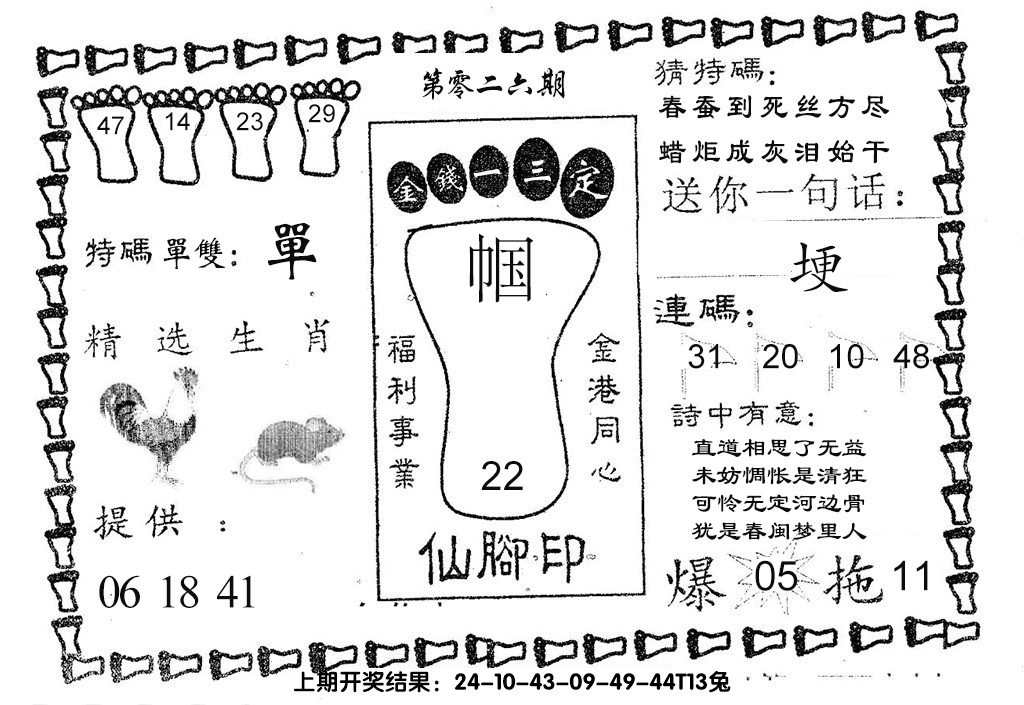 第零二六期
47 14 23 29
特碼單雙：單
精选生肖
提供：
06 18 41
金錢一三定
帼
福利事業
金港同心
22
仙腳印
猜特碼：
春蚕到死丝方尽
蜡炬成灰泪始干
送你一句话：
埂
連碼：
31 20 10 48
詩中有意：
直道相思了无益
未妨惆怅是清狂
可怜无定河边骨
犹是春闺梦里人
爆 05 拖 11
上期开奖结果：24-10-43-09-49-44T13兔